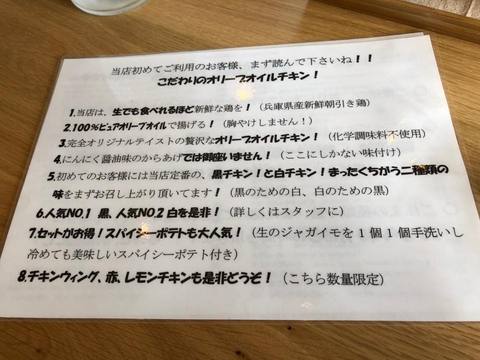 当店初めてご利用のお客様、まず読んで下さいね!!
こだわりのオリーブオイルチキン!
1.当店は、生でも食べれるほど新鮮な鶏を!(兵庫県産新鮮朝引き鶏)
2.100%ピュアオリーブオイルで揚げる!(胸やけしません!)
3.完全オリジナルテイストの贅沢なオリーブオイルチキン!(化学調味料不使用)
4.にんにく醤油味のからあげでは御座いません!(ここにしかない味付け)
5.初めてのお客様には当店定番の、黒チキン!と白チキン!まったくちがう二種類の
味をまずお召し上がり頂いてます!(黒のための白、白のための黒)
6.人気NO.1 黒、人気NO.2 白を是非!(詳しくはスタッフに)
7.セットがお得!スパイシーポテトも大人気!(生のジャガイモを1個1個手洗いし
冷めても美味しいスパイシーポテト付き)
8.チキンウィング、赤、レモンチキンも是非どうぞ!(こちら数量限定)